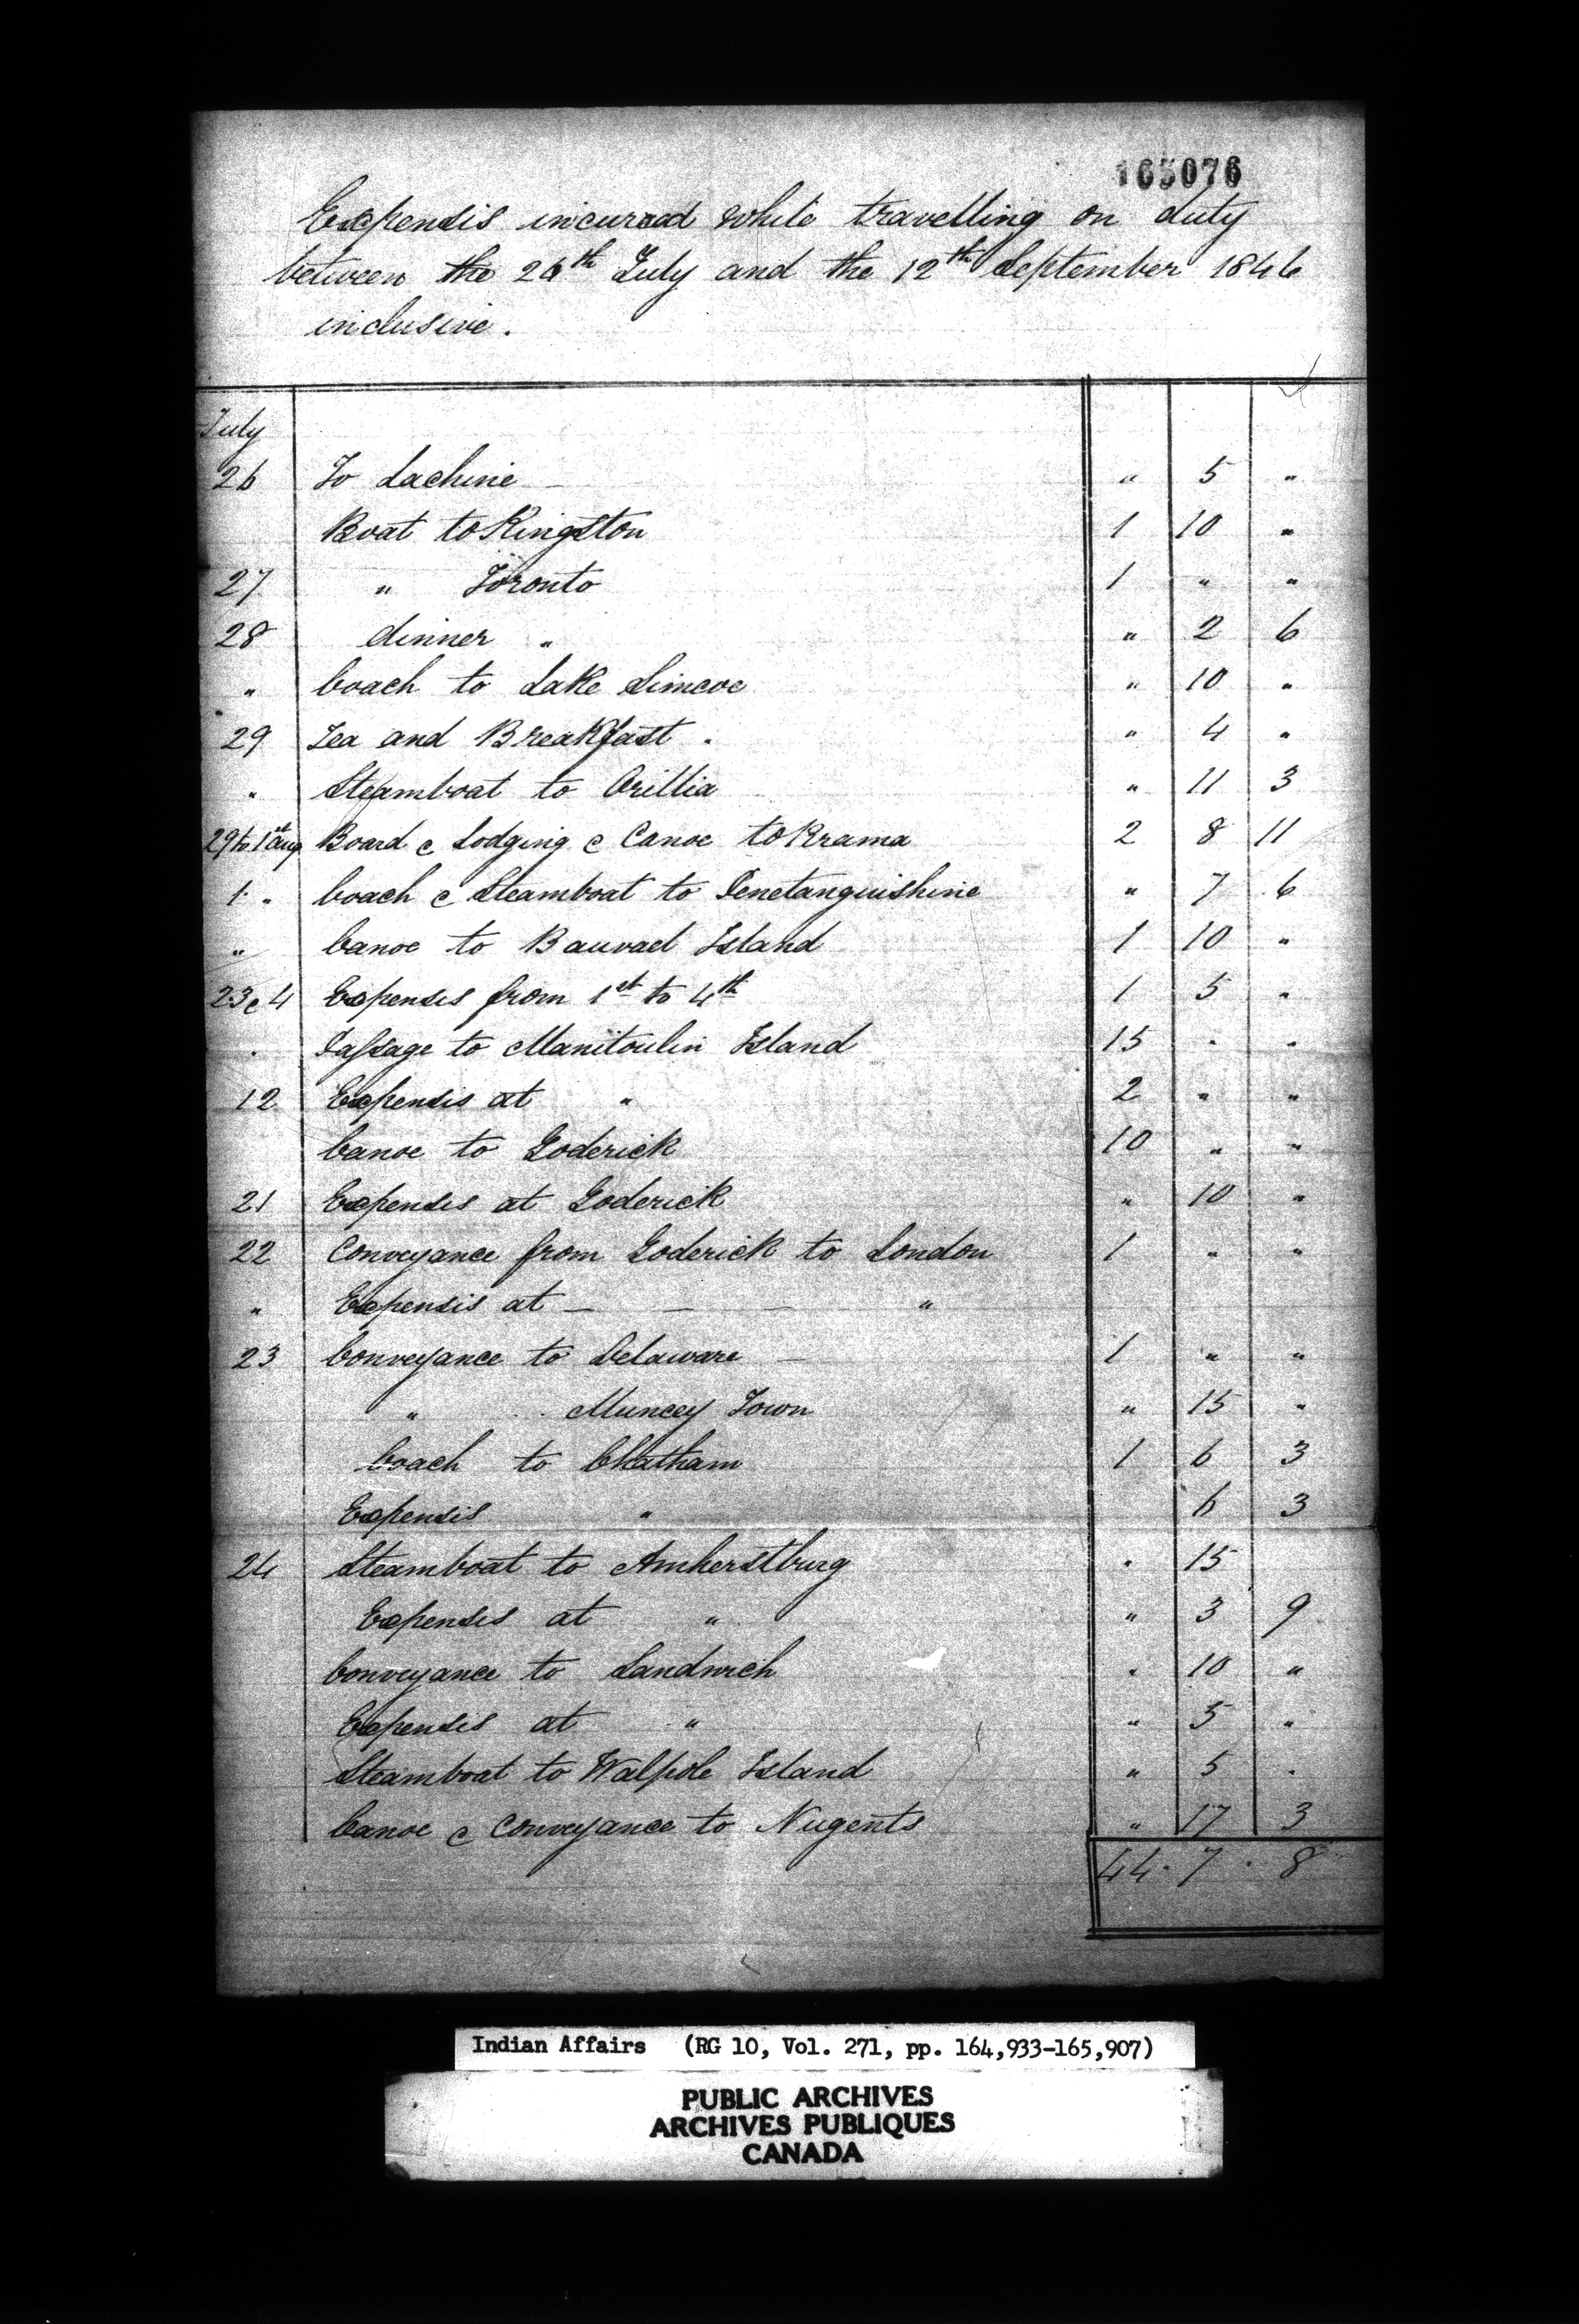 165076
Expensis incurred while travelling on duty
between the 26th July and the 12th September 1846
inclusive.
July
26 To Lachine — " 5 "
Boat to Kingston 1 10 "
27 " Toronto 1 " "
28 dinner " " 2 6
" Coach to Lake Simcoe " 10 "
29 Tea and Breakfast . " 4 "
" Steamboat to Orillia " 11 3
29 to 1st Aug Board & Lodging & Canoe to Rrama 2 8 11
1 " Coach & Steamboat to Penetanguishine " 7 6
" Canoe to Bauvael Island 1 10 "
2.3 & 4 Expenses from 1st to 4th 1 5 "
" Passage to Manitoulin Island 15 " "
12 Expensis at " 2 " "
Canoe to Goderick 10 " "
21 Expenses at Goderick " 10 "
22 Conveyance from Goderick to London 1 " "
" Expensis at — — — "
23 Conveyance to Delaware — 1 " "
" Muncey Town " 15 "
Coach to Chatham 1 6 3
Expensis " 6 3
24 Steamboat to Amherstburg " 15
Expenses at " " 3 9
Conveyance to Sandwich " 10 "
Expensis at " " 5 "
Steamboat to Walpole Island " 5 "
Canoe & Conveyance to Nugents " 17 3
44 . 7 . 8
Indian Affairs (RG 10, Vol. 271, pp. 164,933-165,907)
PUBLIC ARCHIVES
ARCHIVES PUBLIQUES
CANADA